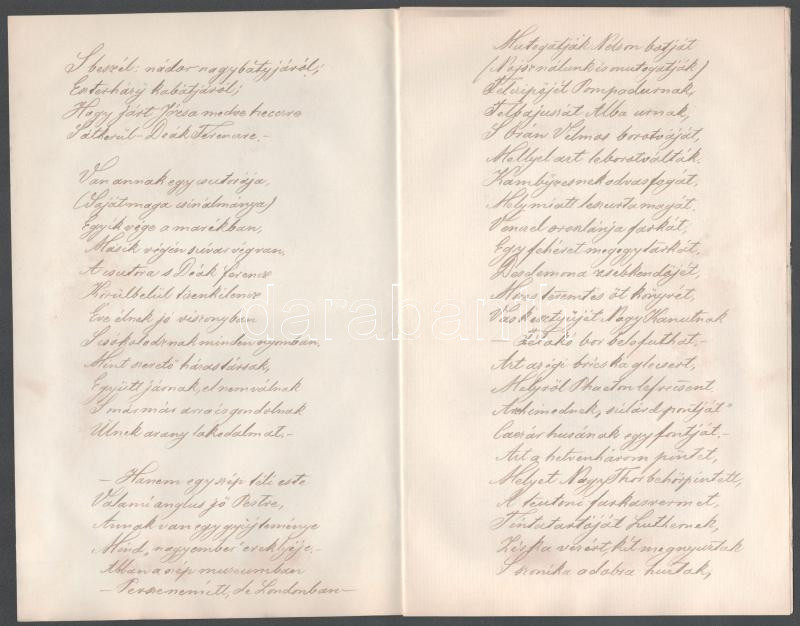 S beszél: nádor nagybátyjáról;
Esterházy kabátjáról;
Hogy járt Józsa medve heccere
S átkerül Deák Ferencre.–
Van annak egy csutorája,
(Saját maga csinálmánya)
Egyik vége a marékban,
Másik végén szivar végvan.
A csutora s Deák ferencz
Körülbelül tizenkilencz
Eve élnek jó viszonyban
S csokolodznak minden nyomban.
Mint szerető házastársak,
Együtt járnak, el nem válnak
S már már arra is gondolnak
Ülnek arany lakodalmat.–
– Hanem egy szép téli este
Valami anglus jő Pestre,
Annak van egy gyűjteménye
Mind „nagy ember ereklyéje.–
Abban a szép museumban
– Persze nem itt, de Londonban –
Mutogatják Nelson botját
(Majd nálunk is mutogatják)
Félcipőjét Pompadurnak,
Felpájussát Alba urnak,
S Orán Vilmos borotváját,
Mellyel azt leborotválták.
Kambüzesnek odvas fogát,
Mely miatt leszurta magát.
Vencel oroszlánja farkát,
Egy fehéret meg egy tarkát,
Desdemona zsebkendőjét,
Mózs teremtés öt könyvét,
Vas kesztyüjét Nagy Kanutnak
– Zérákó bor belefuthat.–
Azt az égi bricska glecsert,
Melyről Phaeton lefreccsent
Archimednek „szilárd pontját"
Caezár husának egy fontját.–
Azt a hetvenhárom pintet,
Melyet Nagy Thor behörpintett,
A teutoni farkasvermet,
Tintatartóját Luthernek,
Ziska vérért, kit megnyuztak
S bőrnika a dobra huztak,
darabanth.hu